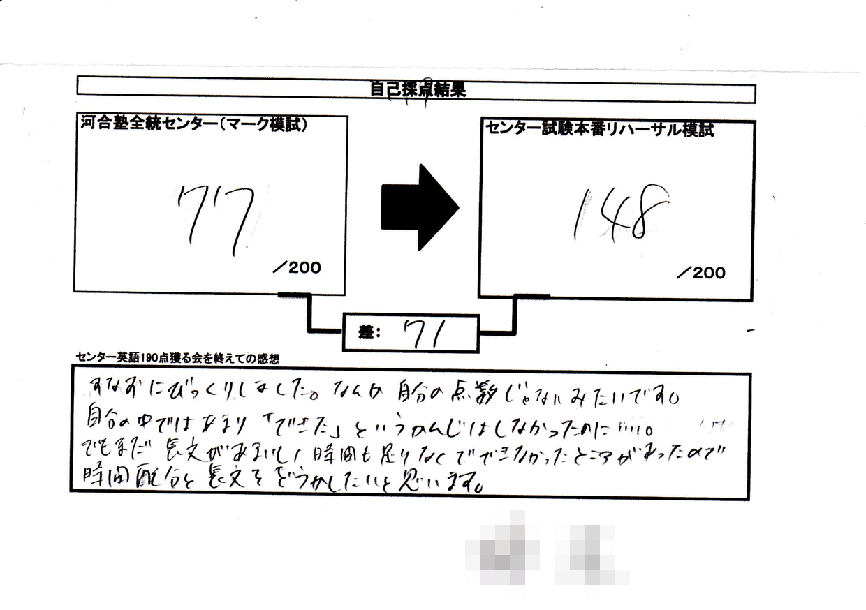 自己採点結果
河合塾全統センター(マーク模試)
77
/200
センター試験本番リハーサル模試
148
/200
差: 71
センター英語190点獲る会を終えての感想
すなおにびっくりしました。なんか自分の点数じゃないみたいです。
自分の中ではあまり「できた」というかんじはしなかったのに……。
でもまだ長文があやしい、時間も足りなくてできなかったところがあったので
時間配分と長文をどうかしたいと思います。